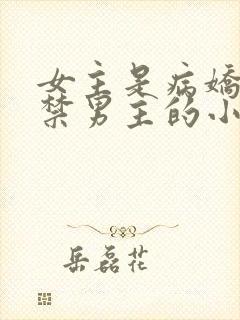 女主是病嬌
禁男主的小
岳磊花